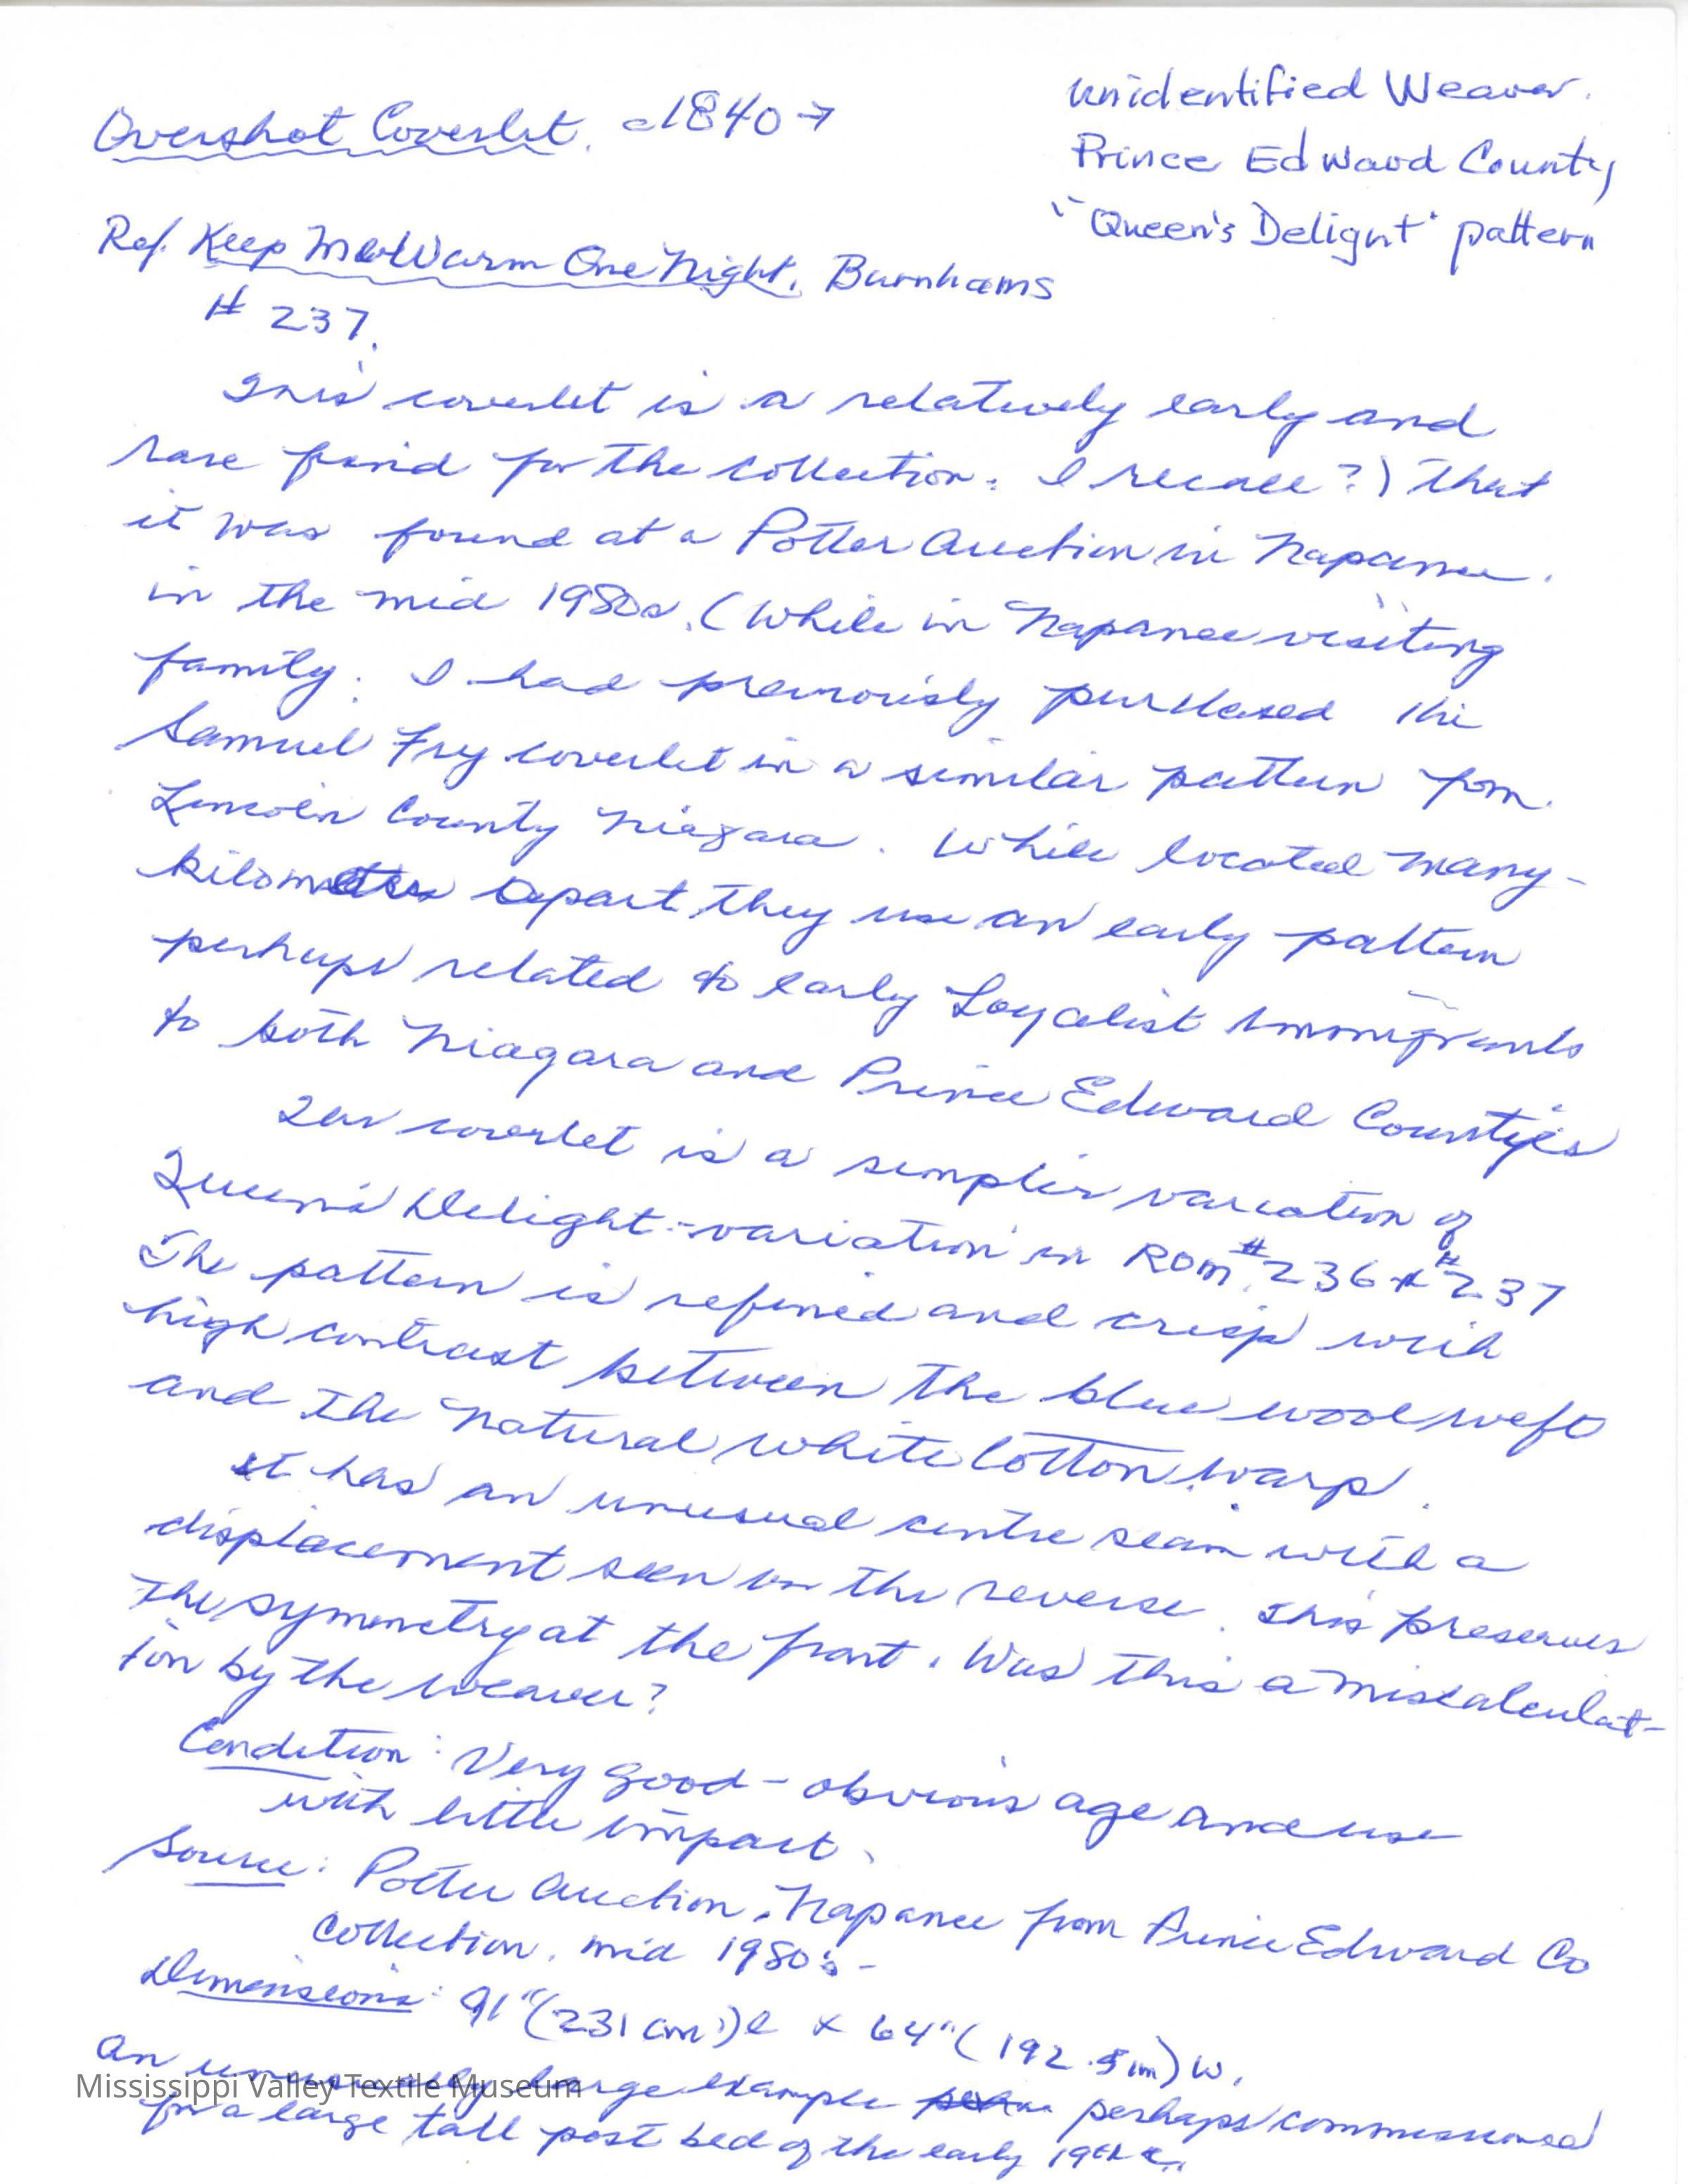 Overshot Coverlet. c1840→
unidentified Weaver.
Prince Edward County
"Queen's Delignt" pattern
Ref. Keep Me Warm One Night, Burnhams
# 237.
This coverlet is a relatively early and
rare find for the collection. I recall?) that
it was found at a Potter Auction in Napanee.
in the mid 1980s. (While in Napanee visiting
family. I had previously purchased the
Samuel Fry coverlet in a similar pattern from
Lincoln County Niagara. While located many-
kilometres apart, they use an early pattern
perhaps related to early Loyalist immigrants
to both Niagara and Prince Edward Counties
coverlet is a simpler variation of
Queen's Delight-variation in ROM #236 & #237
The pattern is refined and crisp with
high contrast between the blue wool weft
and the natural white Cotton warp.
It has an unusual centre seam with a
displacement seen on the reverse. This preserves
the symmetry at the front. Was this a miscalculat-
ion by the weaver?
Condition: Very good - obvious age and use
with little impact.
Source: Potter Auction, Napanee from Prince Edward Co
Collection. mid 1980s-
Dimensions: 91"(231 cm)l x 64"(192.5cm)w.
An unusually large example perhaps commissioned
for a large tall post bed of the early 19th c.
Mississippi Valley Textile Museum